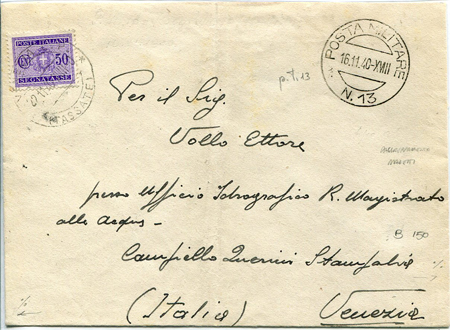 POSTE ITALIANE
50
SEGNATASSE
(TASSATE)
POSTA MILITARE
1 16.11.40-XVIII
N. 13
p.M. 13
Per il Sig.
Vollo Ettore
presso Ufficio Idrografico R. Magistrato
alle Acque -
Campiello Querini Stampalia
(Italia) Venezia
B 150